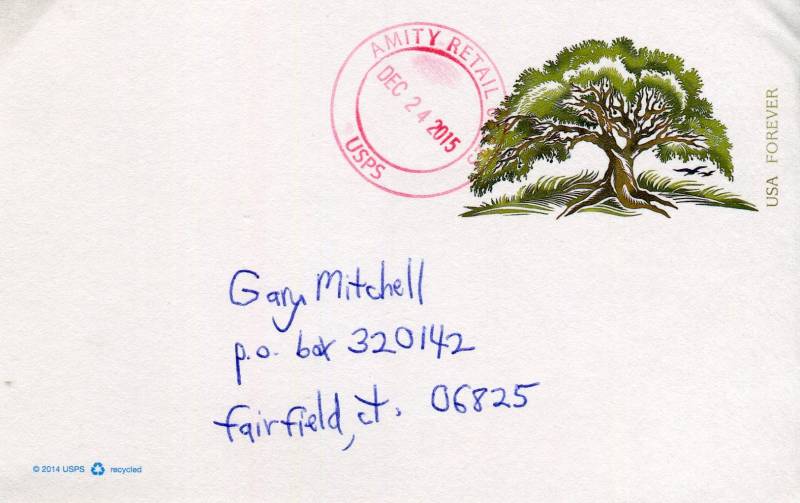 AMITY RETAIL
DEC 24 2015
USPS
USA FOREVER
Gary Mitchell
p.o. box 320142
fairfield, ct. 06825
© 2014 USPS recycled